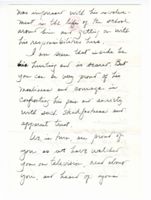 was impressed with his involve-
ment in the life of the school
about him and getting on with
his responsibilities here.
I am sure that inside he
is hurting and is scared. But
you can be very proof of his
manliness and courage in
confronting his pain and anxiety
with such steadfastness and
apparent trust.
We in turn, are proud of
you as we have watched
you on television, read about
you, and heard of your